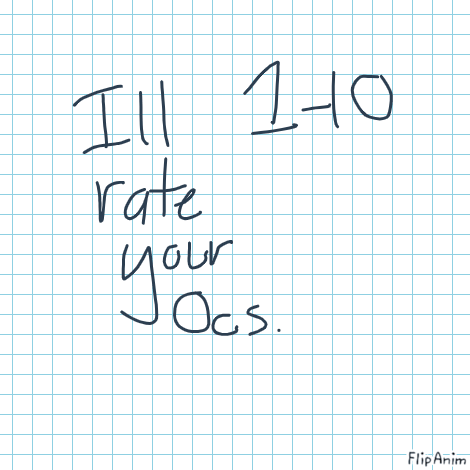 Ill 1-10
rate
your
Ocs.
FlipAnim